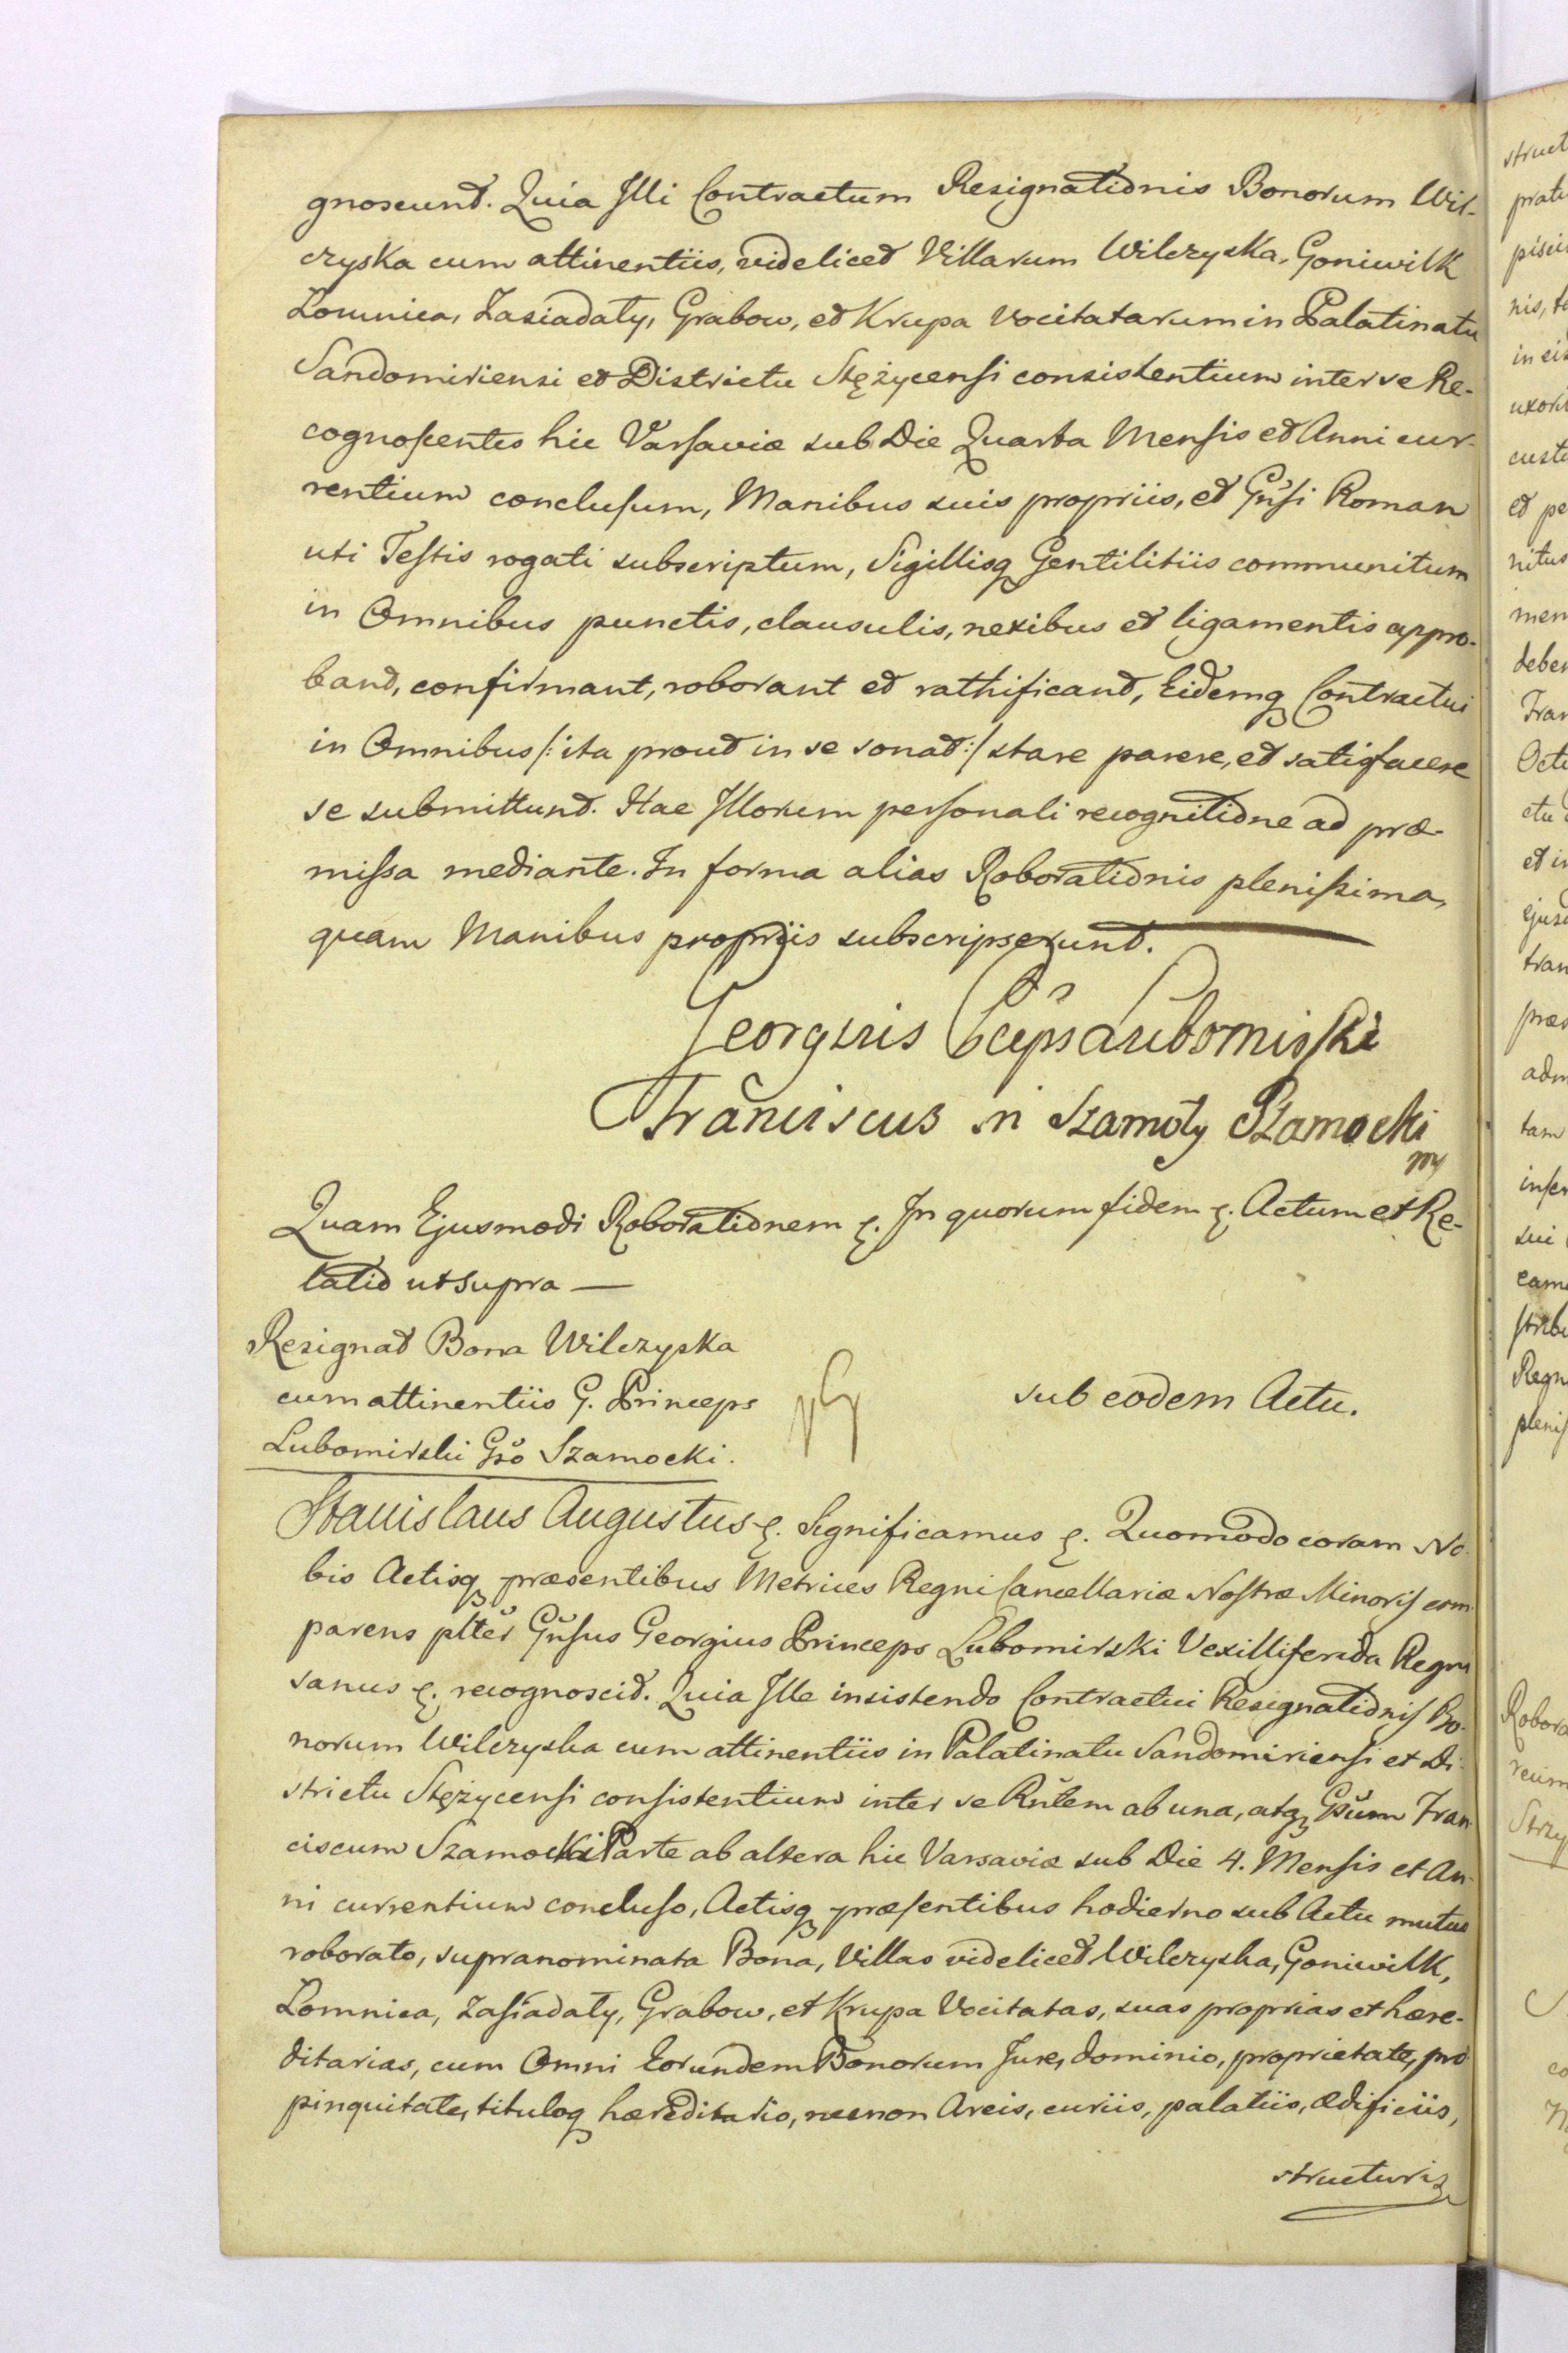 gnoscunt. Quia Illi Contractum Resignationis Bonorum Wil-
czyska cum attinentiis, videlicet Villarum Wilczyska, Goniwilk
Łomnica, Zasiadały, Grabow, et Krupa vocitatarum in Palatinatu
Sandomiriensi et Districtu Stężycensi consistentium inter se Re-
cognoscentes hic Varsaviæ sub Die Quarta Mensis et Anni cur-
rentium conclusum, Manibus suis propriis, et Gnsi Roman
uti Testis rogati subscriptum, Sigillisq Gentilitiis communitum
in Omnibus punctis, clausulis, nexibus et ligamentis appro-
bant, confirmant, roborant et rathificant, Eidemq Contractui
in Omnibus /: ita prout in se sonat :/ stare parere, et satisfacere
se submittunt. Hac Illorum personali recognitione ad præ-
missa mediante. In forma alias Roborationis plenissima,
quam Manibus propriis subscripserunt.
Georgius Pceps Lubomirski
Franciscus in Szamoty Szamocki
mp
Quam Ejusmodi Roborationem &. In quorum fidem &. Actum et Re-
latio ut supra —
Resignat Bona Wilczyska
cum attinentiis G. Princeps
Lubomirski Gso Szamocki.
sub eodem Actu.
Stanislaus Augustus &. Significamus &. Quomodo coram No-
bis Actisq præsentibus Metrices Regni Cancellariæ Nostræ Minoris com-
parens plter Gnsus Georgius Princeps Lubomirski Vexilliferida Regni
sanus &. recognoscit. Quia Ille insistendo Contractui Resignationis Bo-
norum Wilczyska cum attinentiis in Palatinatu Sandomiriensi et Di-
strictu Stężycensi consistentium inter se Rntem ab una, atq Gsum Fran-
ciscum Szamocki Parte ab altera hic Varsaviæ sub Die 4. Mensis et An-
ni currentium concluso, Actisq præsentibus hodierno sub Actu mutuo
roborato, supranominata Bona, Villas videlicet Wilczyska, Goniwilk,
Łomnica, Zasiadały, Grabow, et Krupa Vocitatas, suas proprias et hære-
ditarias, cum Omni Eorundem Bonorum Jure, dominio, proprietate, pro-
pinquitate, tituloq hæreditario, necnon Areis, curiis, palatiis, ædificiis,
structuris